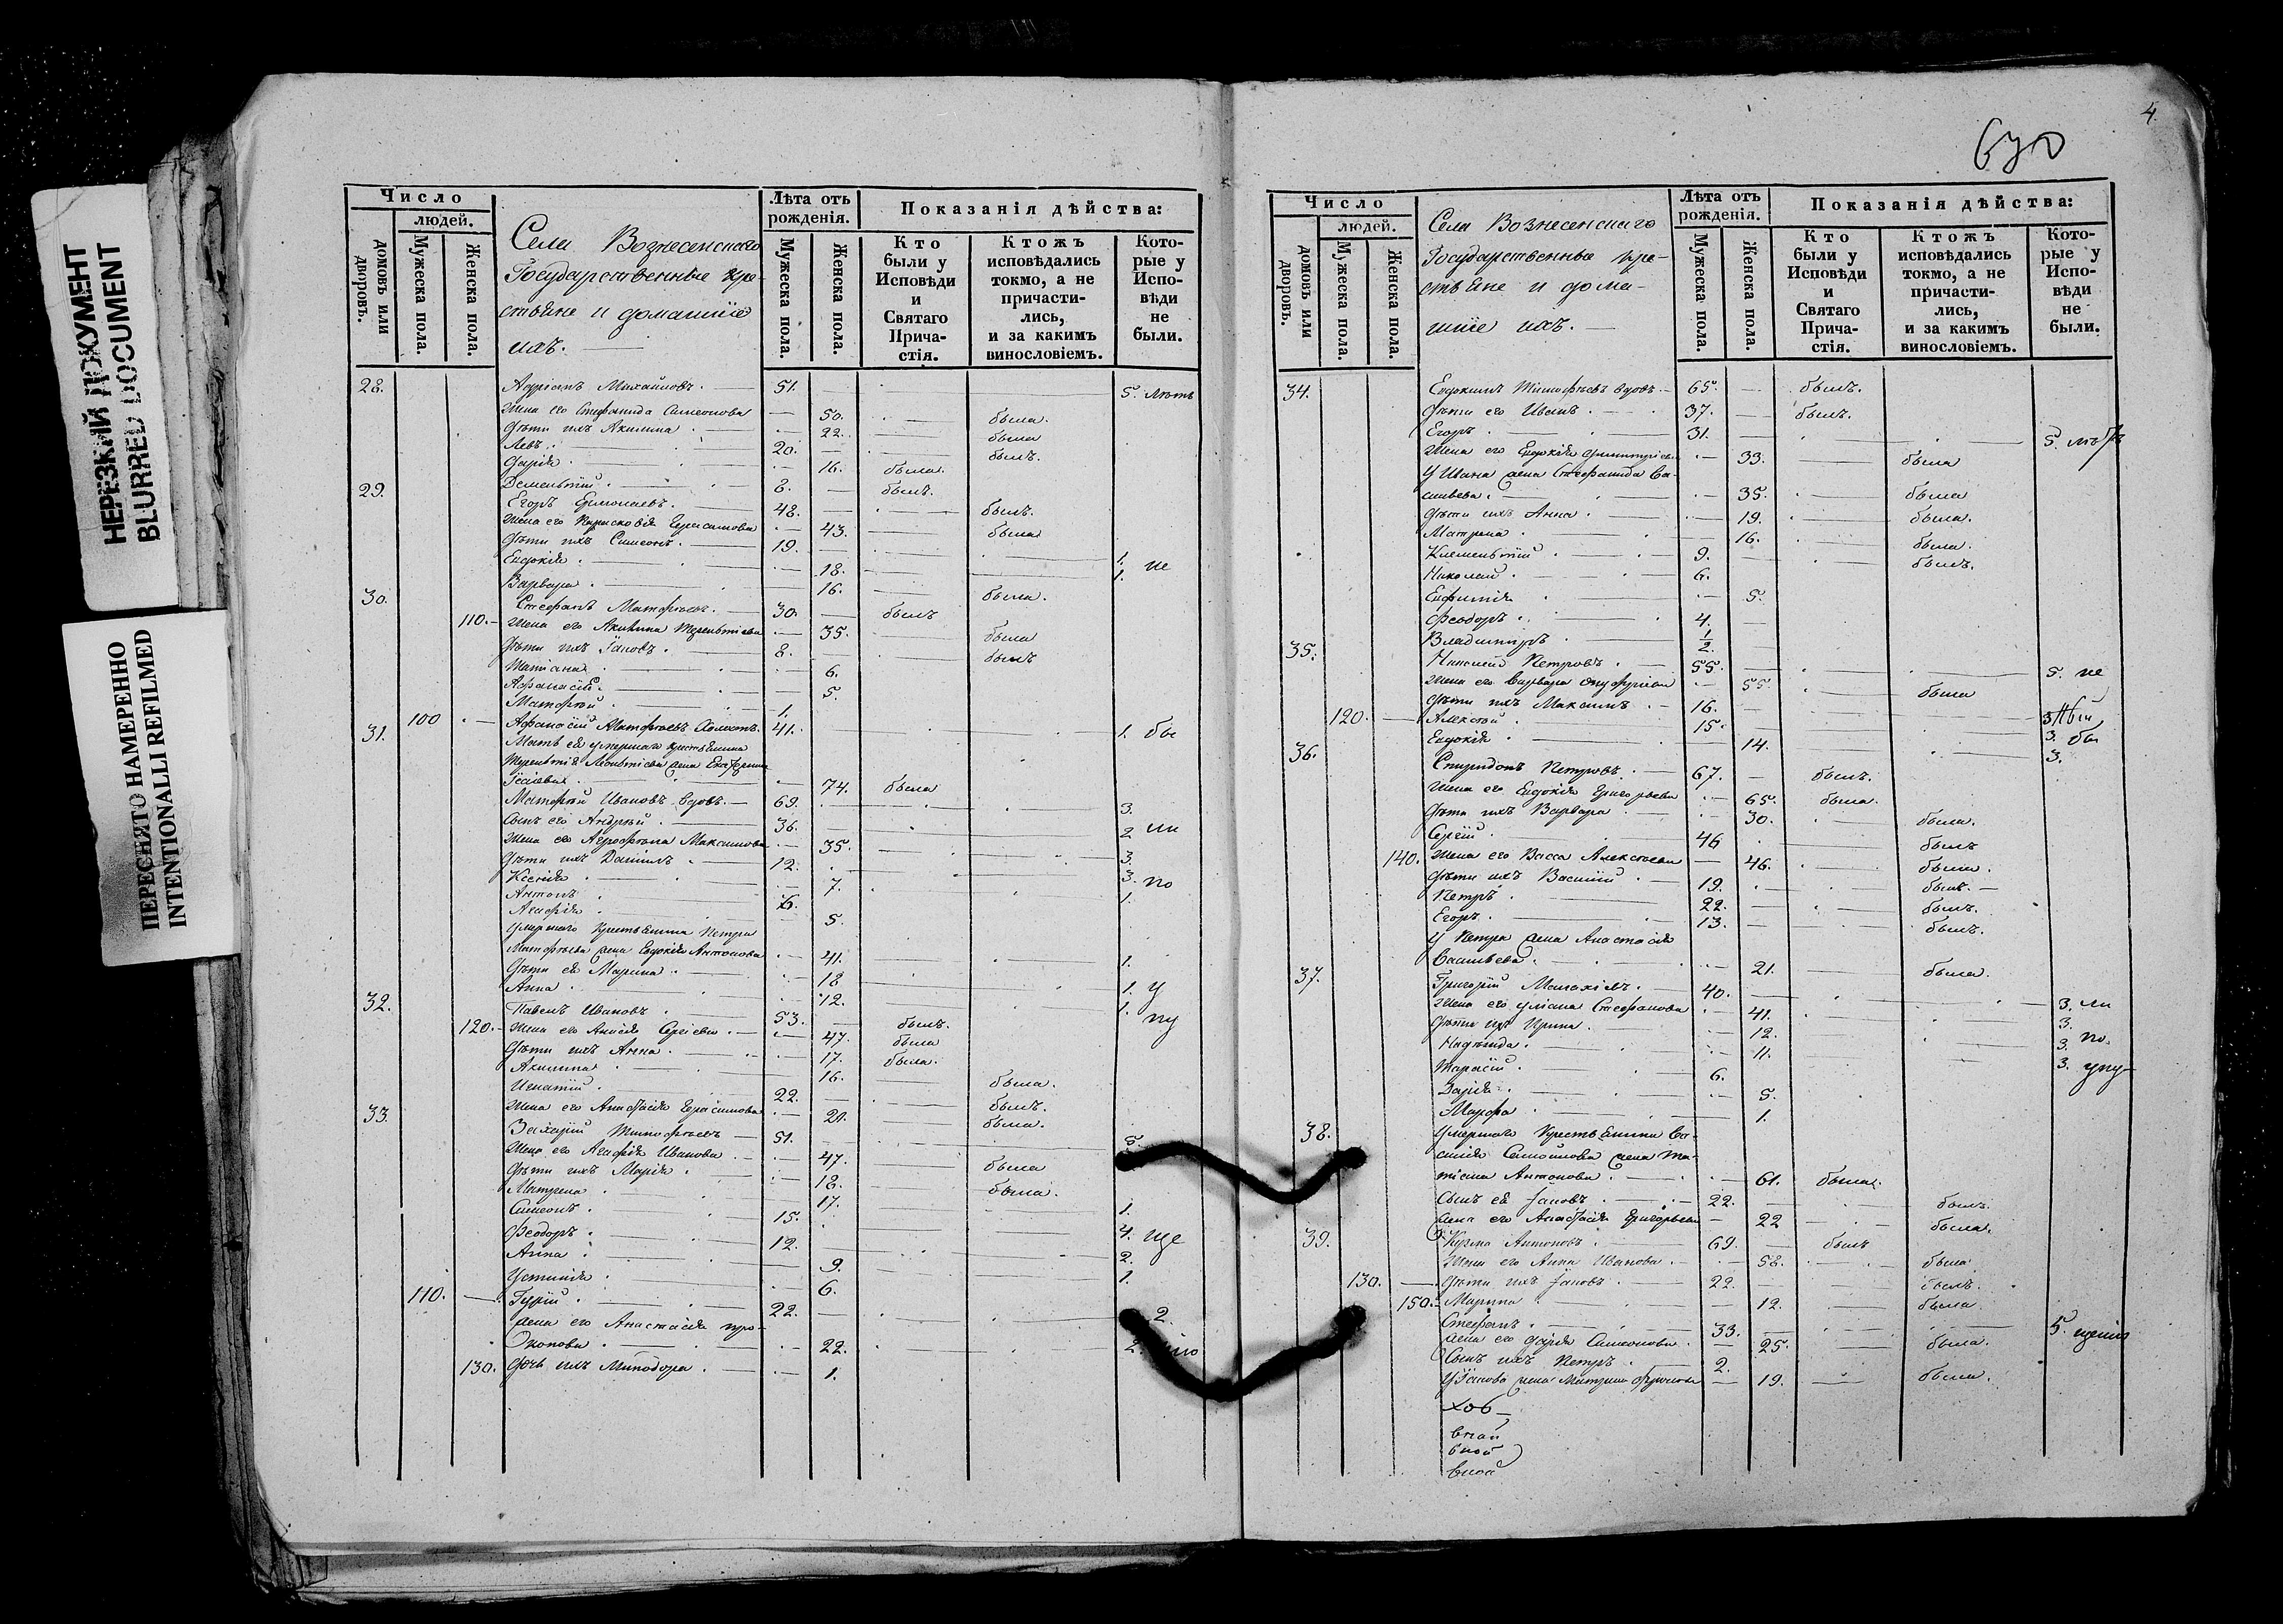 НЕРЕЗКИЙ ДОКУМЕНТ
BLURRED DOCUMENT
ПЕРЕСНЯТО НАМЕРЕННО
INTENTIONALLI REFILMED
Число
людей.
домовъ или дворовъ.
Мужеска пола.
Женска пола.
Села Вознесенскаго
Государственные кре-
стьяне и домашніе
ихъ.
Лѣта отъ рожденія.
Мужеска пола.
Женска пола.
Показанія дѣйства:
Кто были у Исповѣди и Святаго Прича-стія.
Ктожъ исповѣдались токмо, а не причасти-лись, и за какимъ винословіемъ.
Кото-рые у Испо-вѣди не были.
28. Адріанъ Михайловъ. 51. 5. лѣтъ
Жена его Стефанида Симеонова 50. была.
Дѣти ихъ Акилина. 22. была
Левъ. 20. былъ.
Дарія 16. была.
Дементій 8. былъ.
29. Егоръ Ермолаевъ. 48. былъ.
Жена его Парасковія Герасимова 43. была
Дѣти ихъ Симеонъ. 19. 1.
Евдокія. 18. 1. не
Варвара. 16. была.
30. Стефанъ Матфѣевъ. 30. былъ
110. Жена его Акилина Терентіева 35. была
Дѣти ихъ Іаковъ. 8. былъ
Татіана. 6.
5.
Матфей 1.
31. 100 Афанасій Матфѣевъ холостъ. 41. 1. бы
Мать его умершаго крестьянина
Терентія Леонтіева жена
74. была
Матфей Ивановъ вдовъ. 69. 3.
Сынъ его Андрей. 36. 2 ли
Жена его Агрофена Максимова 35. 3.
Дѣти ихъ Даніилъ 12. 3.
Ксенія 7. по
Антонъ 6. 1.
Агафія 5.
Умершаго крестьянина Петра
Матфѣева жена Евдокія Антонова 41. 1.
Дѣти ея Марина. 18 1. у
Анна. 12. 1.
32. Павелъ Ивановъ. 53. былъ. пу
120. Жена его Анисія Сергіева. 47. была
Дѣти ихъ Анна. 17. была.
Акилина 16. была.
Игнатій 22. былъ.
Жена его Анастасія Герасимова 20. была.
33. Захарій Тимофѣевъ 51. 5.
Жена его Агафія Иванова 47. была
Дѣти ихъ Марія. 18. была.
Матрена. 17. 1.
Симеонъ. 15. 4. ще
Феодоръ. 12. 2.
Анна. 9. 1.
Устинія. 6.
110. Гурій 22. 2.
жена его Анастасія про-
22. 2.
130. дочь ихъ Минодора. 1.
4.
Число
людей.
домовъ или дворовъ.
Мужеска пола.
Женска пола.
Села Вознесенскаго
Государственные кре-
стьяне и дома-
шніе ихъ.
Лѣта отъ рожденія.
Мужеска пола.
Женска пола.
Показанія дѣйства:
Кто были у Исповѣди и Святаго Прича-стія.
Ктожъ исповѣдались токмо, а не причасти-лись, и за какимъ винословіемъ.
Кото-рые у Испо-вѣди не были.
34. Евдокимъ Тимофѣевъ вдовъ. 65. былъ.
Дѣти его Иванъ. 37. былъ.
Егоръ. 31. 5.
Жена его Евдокія Димитріева 33. была
У Ивана жена Стефанида Ва-
сильева. 35. была
Дѣти ихъ Анна. 19. была.
Матрена 16. была.
Климентій 9. былъ.
Николай. 6.
Евфимія 5.
Феодоръ. 4.
Владиміръ. 1/2.
35. Николай Петровъ. 55. 5. не
Жена его Варвара Онуфріева 55. была
Дѣти ихъ Максимъ. 16. 3
120. Алексѣй 15. 3. бы
Евдокія 14. 3.
36. Спиридонъ Петровъ. 67. былъ.
Жена его Евдокія Григорьева 65. была.
Дѣти ихъ Варвара. 30. была.
Сергій. 46 былъ
140. Жена его Васса Алексѣева 46. была.
Дѣти ихъ Василій. 19. былъ.
Петръ 22. былъ.
Егоръ. 13. былъ.
У Петра жена Анастасія
Васильева. 21. была.
37. Григорій Малахіевъ. 40. 3. ли
Жена его Уліана Стефанова 41. 3.
Дѣти ихъ Ирина. 12. 3. по.
Надежда. 11. 3. упу-
Тарасій. 6.
Дарія. 5.
Марфа 1.
38. Умершаго крестьянина Ва-
силія Самойлова жена Та-
тіана Антонова. 61. была.
Сынъ ея Іаковъ. 22. былъ.
жена его Анастасія Григорьева 22 была.
39. Кузма Антоновъ. 69. былъ
Жена его Анна Иванова. 58. была
130. Дѣти ихъ Іаковъ. 22. былъ.
150. Марина 12. была
Стефанъ. 33. 5. щенію
жена его Дарія Симеонова. 25. была.
Сынъ ихъ Петръ. 2.
У Іакова жена Матрена 19. была.